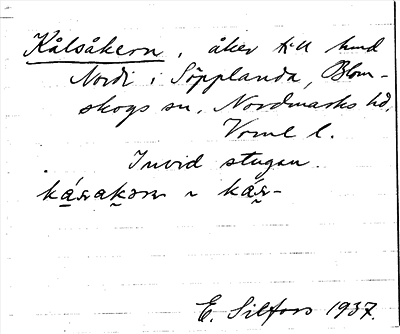 Kålsåkern, åker till hmd
Nordi i Söpplanda, Blom-
skogs sn, Nordmarks hd,
Vrml l.
Invid stugan.
E. Silfors 1937